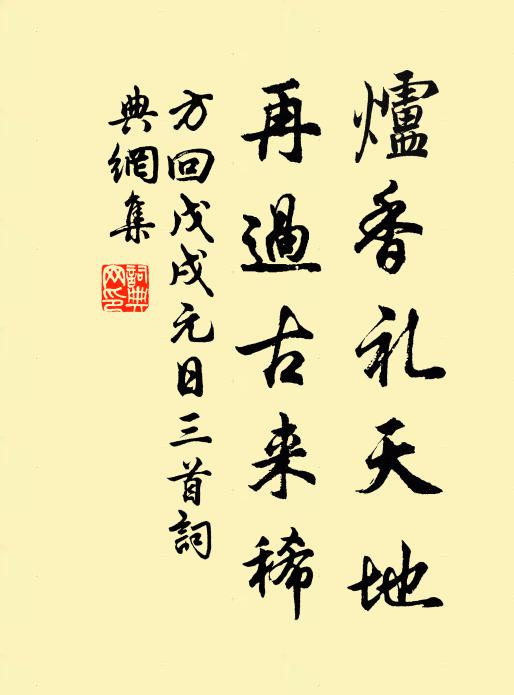 爐香礼天地
再過古来稀
方回戊戌元日三首詞
典網集
詞典网印